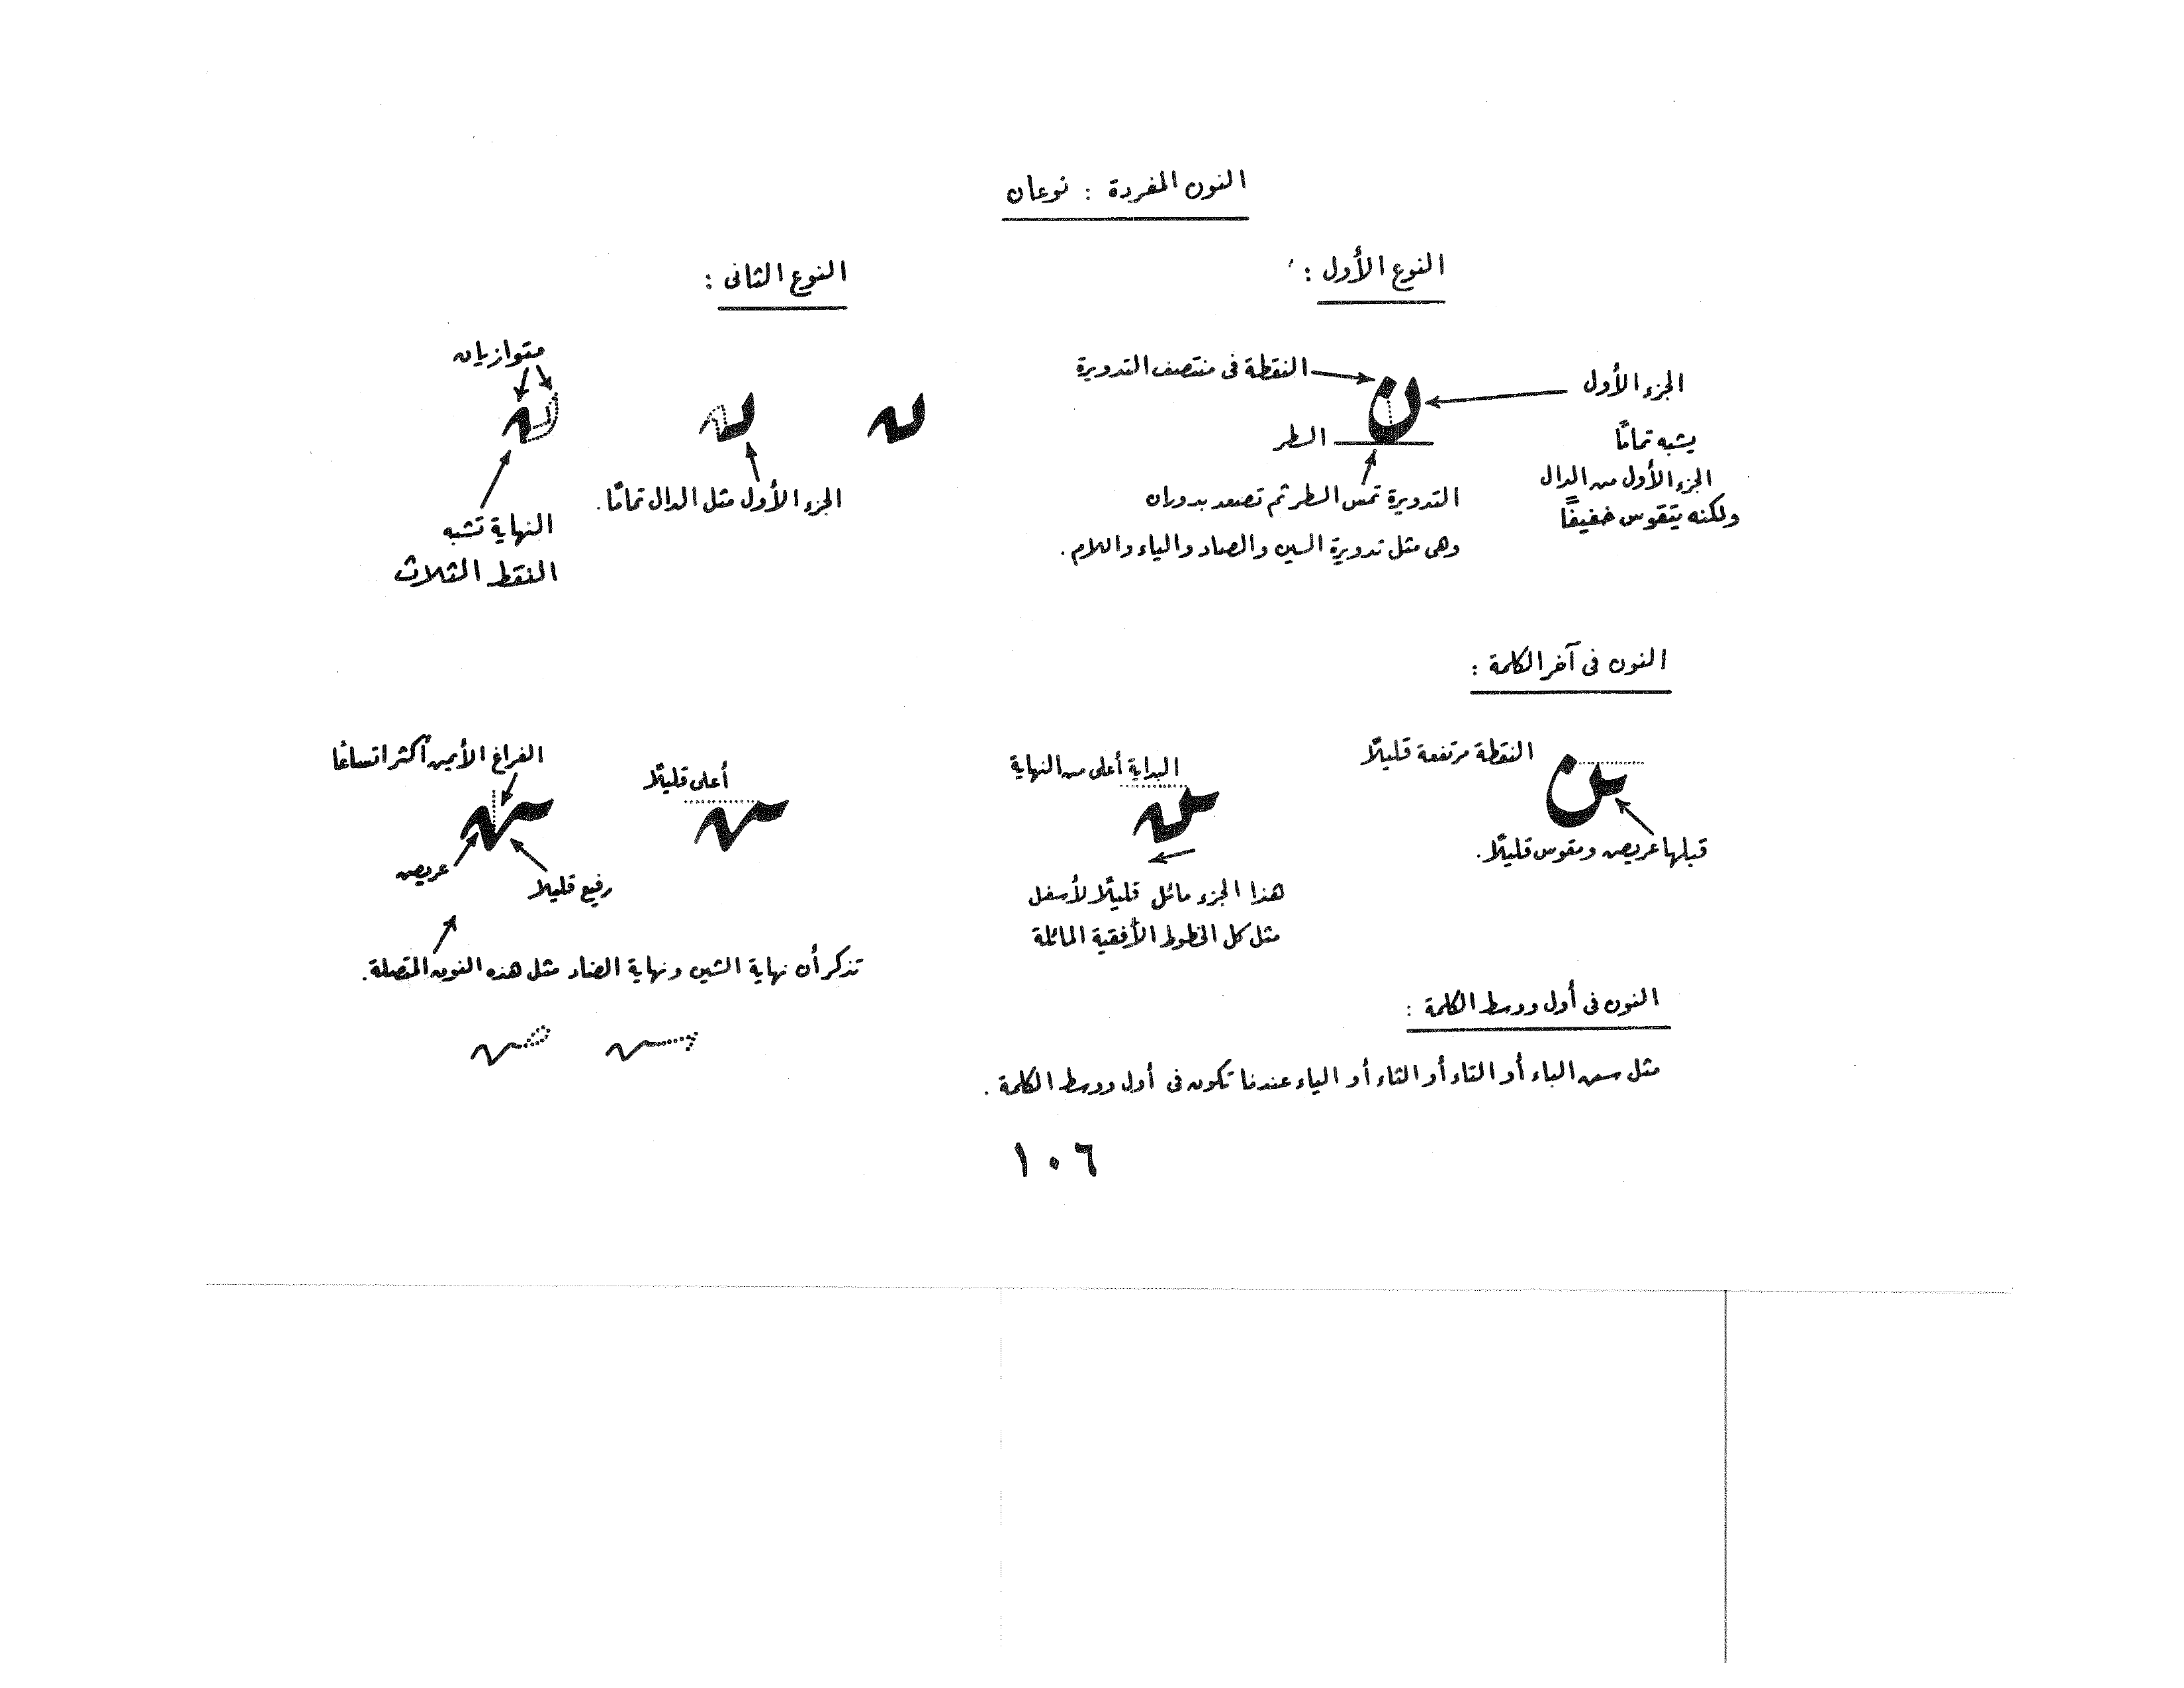 النون المفردة : نوعان
النوع الأول :
النقطة فى منتصف التدويرة
الجزء الأول
يشبه تمامًا
الجزء الأول من الدال
ولكنه يتقوس خفيفًا
السطر
التدويرة تمس السطر ثم تصعد بدوران
وهى مثل تدويرة السين والصاد والياء واللام .
النوع الثانى :
الجزء الأول مثل الدال تمامًا .
متوازيان
النهاية تشبه
النقط الثلاث
النون فى آخر الكلمة :
النقطة مرتفعة قليلًا
قبلها عريض ومقوس قليلًا .
البداية أعلى من النهاية
هذا الجزء مائل قليلًا لأسفل
مثل كل الخطوط الأفقية المائلة
أعلى قليلًا
الفراغ الأيمن أكثر اتساعًا
عريض
رفيع قليلا
تذكر أن نهاية الشين ونهاية الضاد مثل هذه النون المتصلة .
النون فى أول ووسط الكلمة :
مثل سن الباء أو التاء أو الثاء أو الياء عندما تكون فى أول ووسط الكلمة .
١٠٦